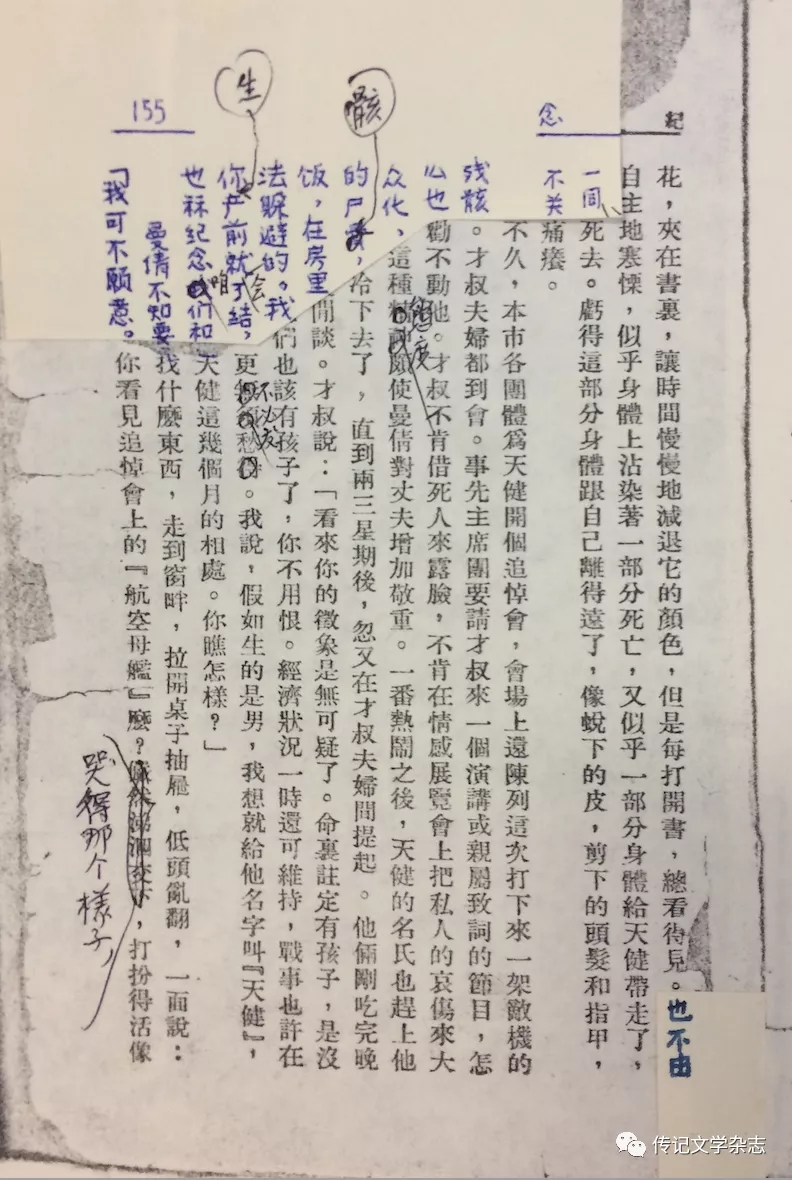 紀
念
155
生
骸
花，夾在書裏，讓時間慢慢地減退它的顏色，但是每打開書，總看得見。也不由
自主地寒慄，似乎身體上沾染著一部分死亡，又似乎一部分身體給天健帶走了，
一同死去。虧得這部分身體跟自己離得遠了，像蛻下的皮，剪下的頭髮和指甲，
不关痛癢。
不久，本市各團體爲天健開個追悼會，會場上還陳列這次打下來一架敵機的
残骸。才叔夫婦都到會。事先主席團要請才叔來一個演講或親屬致詞的節目，怎
么也勸不動他。才叔不肯借死人來露臉，不肯在情感展覽會上把私人的哀傷來大
众化，這種態度頗使曼倩對丈夫增加敬重。一番熱鬧之後，天健的名氏也趕上他
的尸，冷下去了，直到兩三星期後，忽又在才叔夫婦間提起。他倆剛吃完晚
饭，在房里閒談。才叔說：「看來你的徵象是無可疑了。命裏註定有孩子，是沒
法躲避的。我們也該有孩子了，你不用恨。經濟狀況一時還可維持，戰事也許在
你产前就会了结，更不必发愁。我說，假如生的是男，我想就給他名字叫『天健』，
也秝纪念咱们和天健這幾個月的相處。你瞧怎樣？」
曼倩不知要找什麼東西，走到窗畔，拉開桌子抽屜，低頭亂翻，一面說：
「我可不願意。你看見追悼會上的『航空母艦』麼？哭得那个樣子，打扮得活像
传记文学杂志